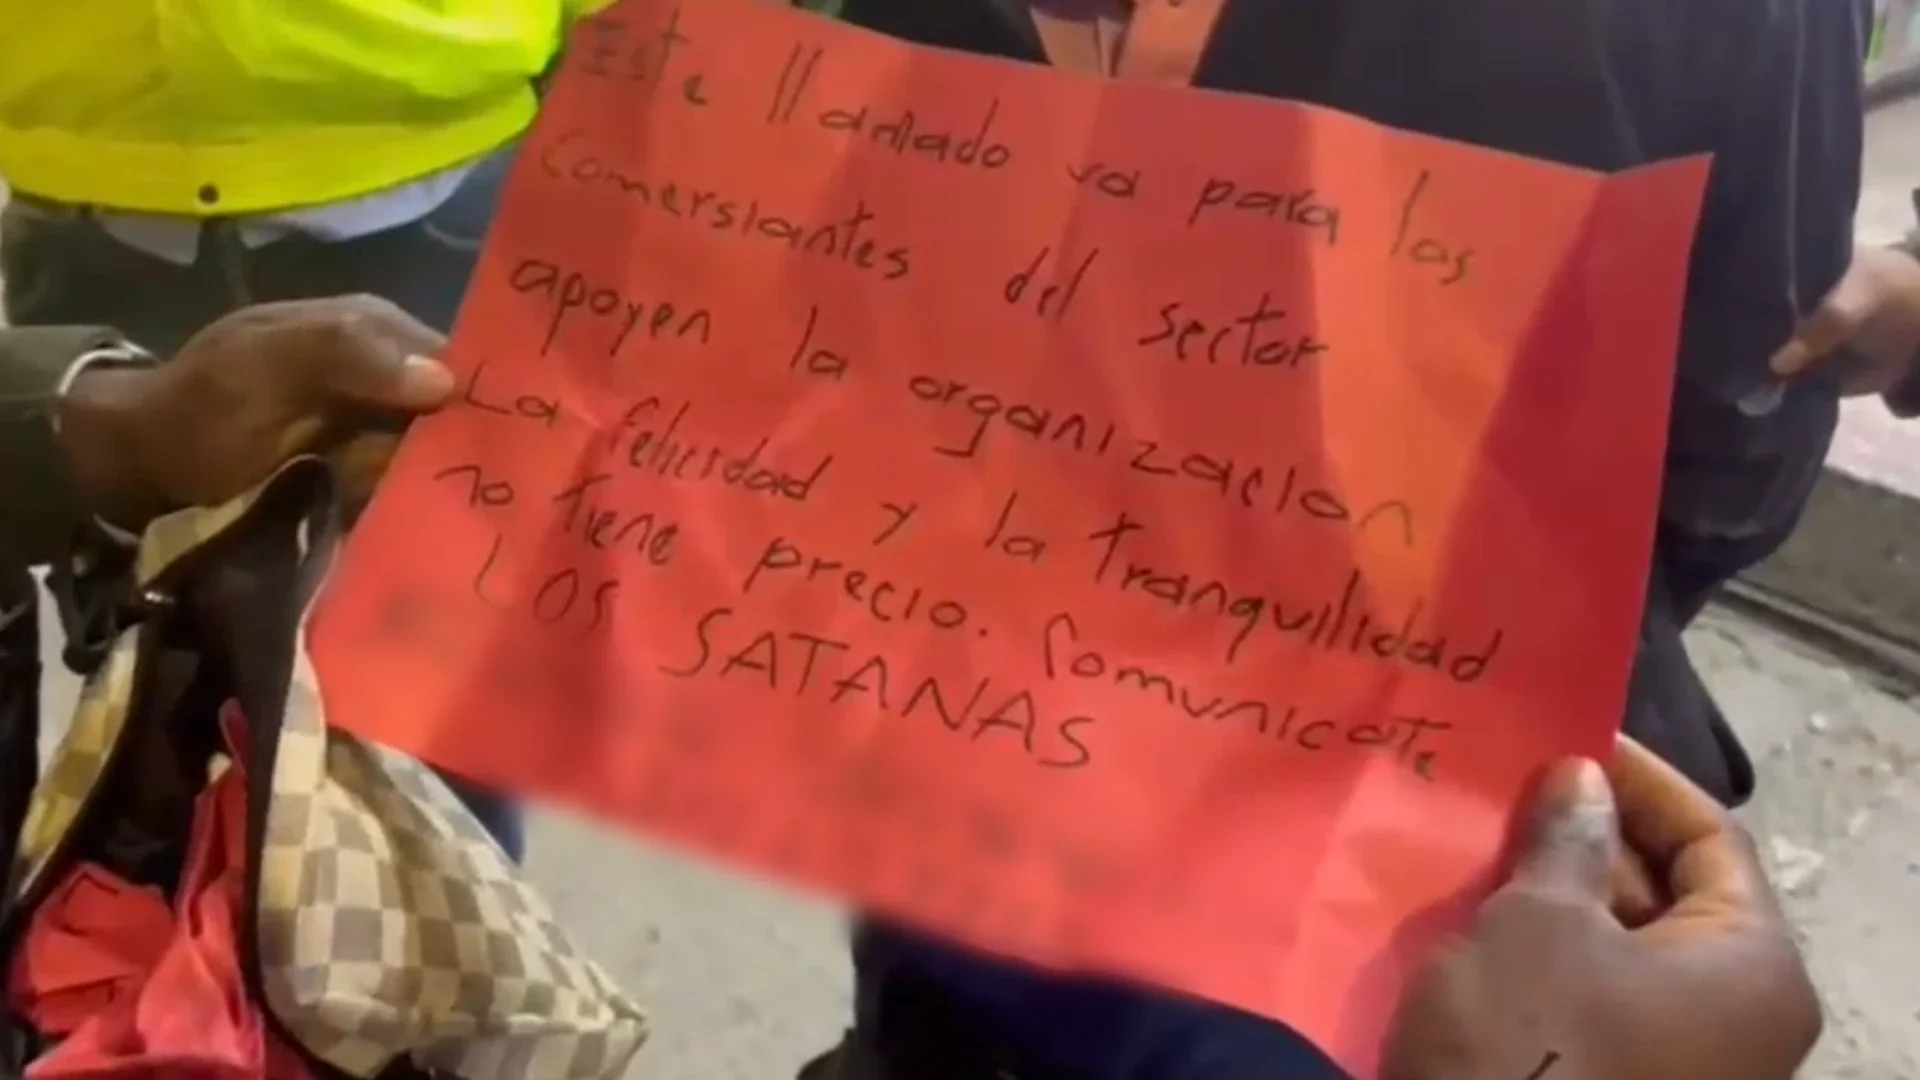 Este llamado va para los
Comersiantes del sector
apoyen la organizacion
La felicidad y la tranquilidad
no tiene precio. Comunicate
LOS SATANAS